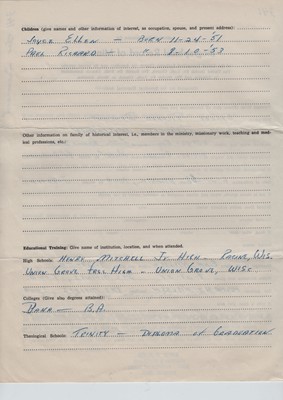 Children (give names and other information of interest, as occupation, spouse, and present address):
Joyce Ellen — Born 11-24-'51
Paul Richard — " 8-10-'53
Other information on family of historical interest, i.e., members in the ministry, missionary work, teaching and med-
ical professions, etc.:
Educational Training: Give name of institution, location, and when attended.
High Schools: Henry Mitchell Jr High — Racine, Wis.
Union Grove High — Union Grove, Wisc
Colleges (Give also degrees attained):
Dana — B.A.
Theological Schools: Trinity — Diploma of Graduation